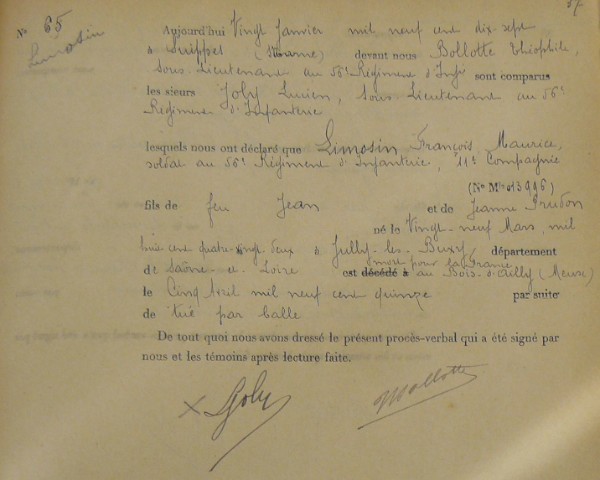 57
No 65
Limosin
Aujourd'hui Vingt Janvier mil neuf cent dix sept
à Suippes (Marne) devant nous Bollotte Théophile,
Sous-Lieutenant au 56e Régiment d'Infie sont comparus
les sieurs Joly Lucien, Sous-Lieutenant au 56e
Régiment d'Infanterie
lesquels nous ont déclaré que Limosin François, Maurice,
soldat au 56e Régiment d'Infanterie, 11e Compagnie
(No Mle 013996)
fils de feu Jean et de Jeanne Prudon
né le Vingt-neuf Mars, mil
huit cent quatre-vingt deux à Jully-les-Buxy, département
de Saône-et-Loire est décédé à mort pour la France au Bois-d'Ailly (Meuse)
le Cinq Avril mil neuf cent quinze par suite
de tué par balle
De tout quoi nous avons dressé le présent procès-verbal qui a été signé par
nous et les témoins après lecture faite.
Joly Bollotte